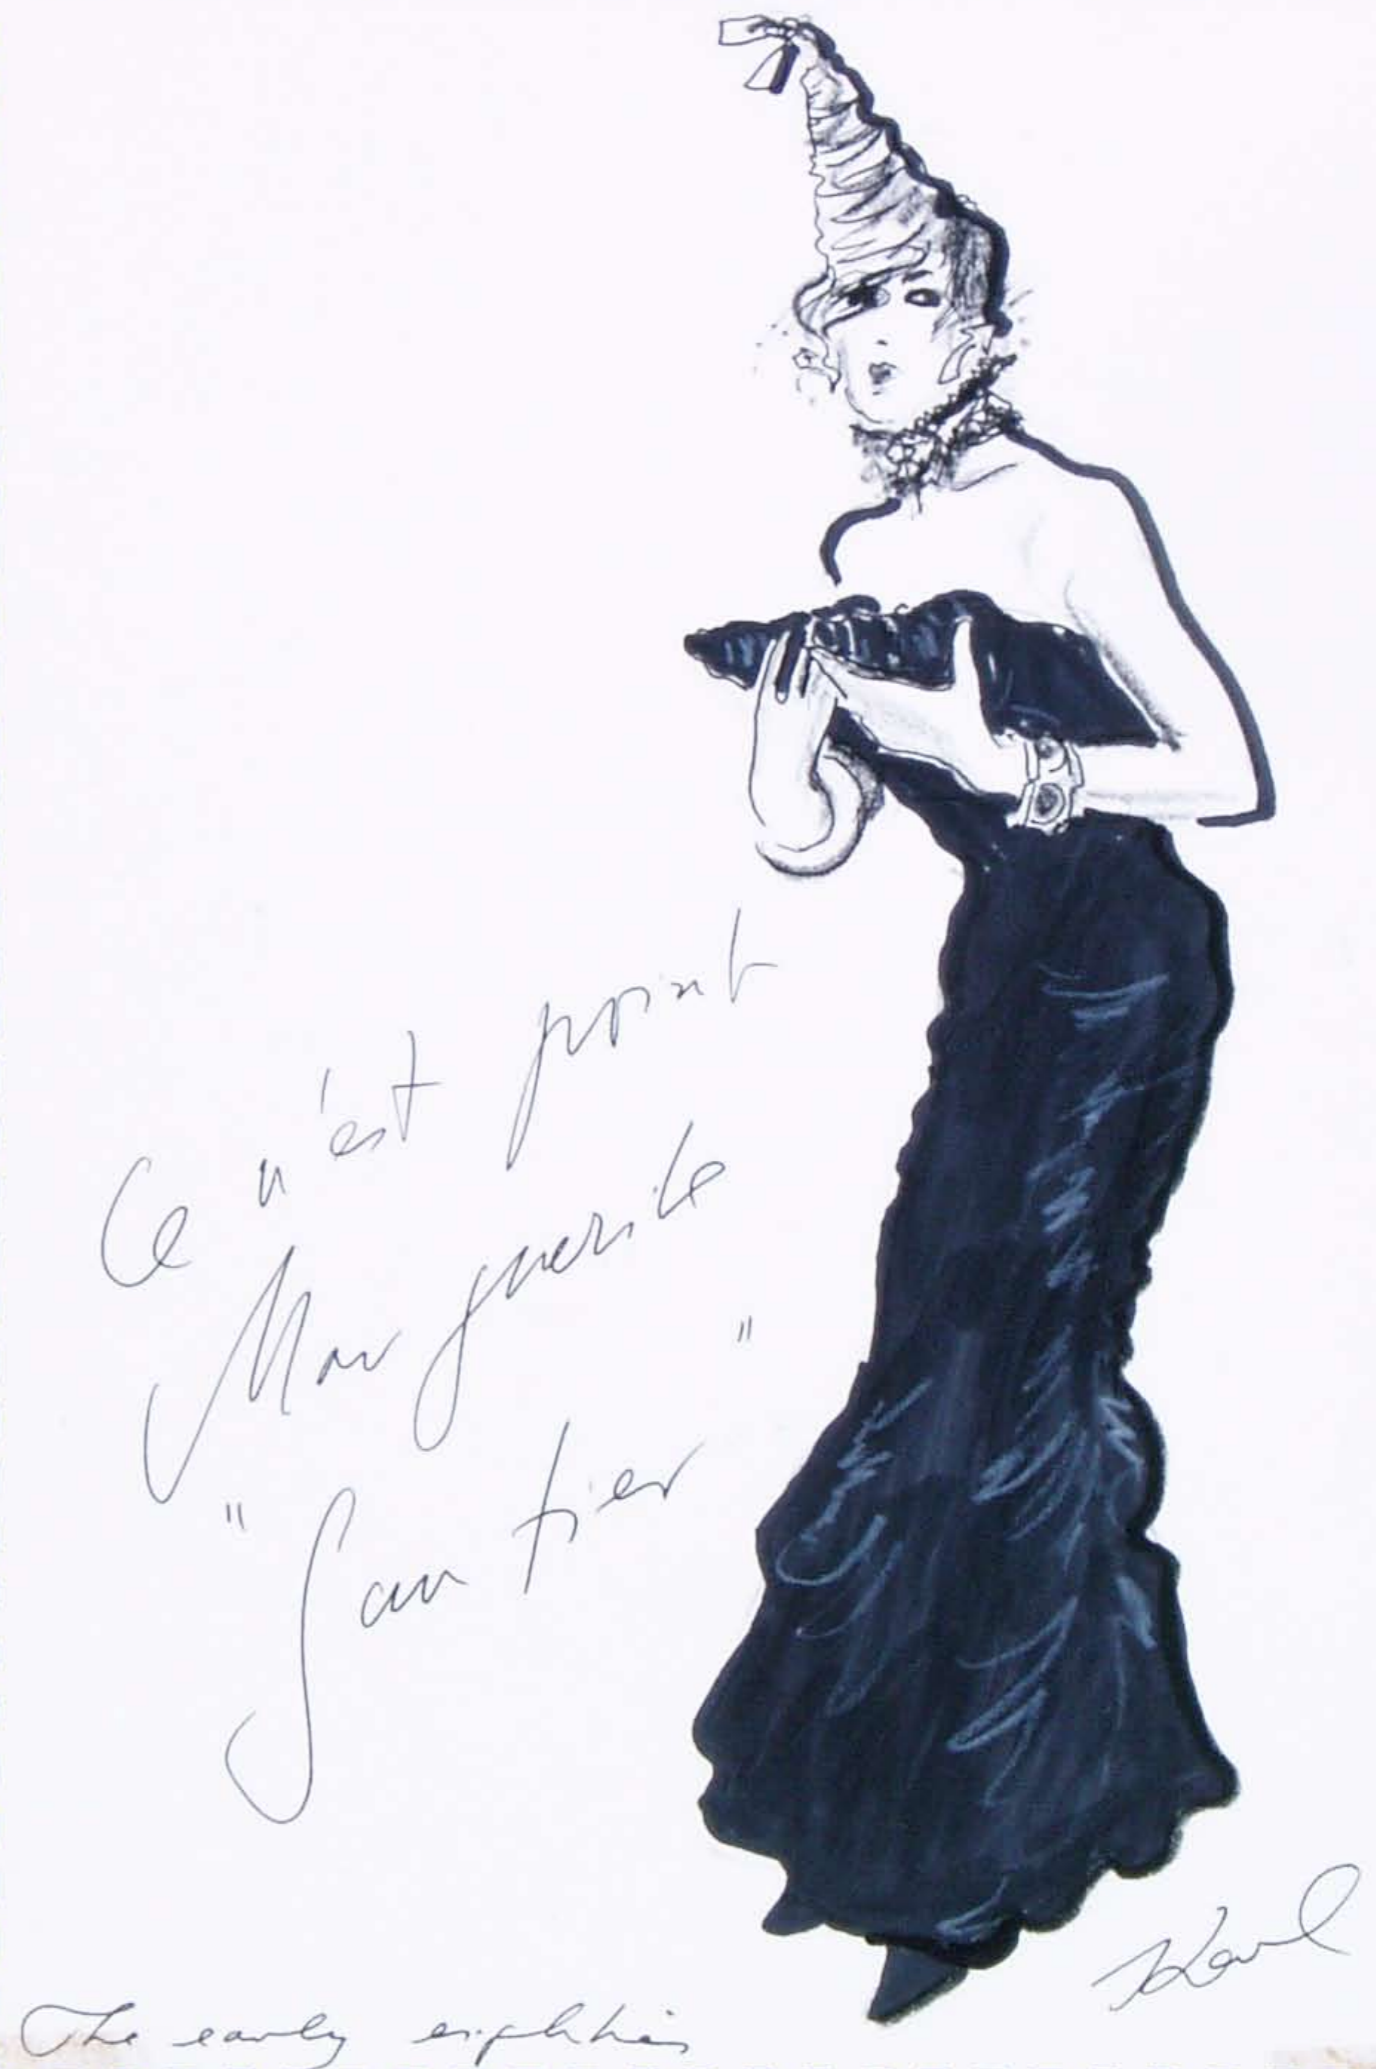 Ce n'est point
Marguerite
"Gautier"
Karl
The early eighties